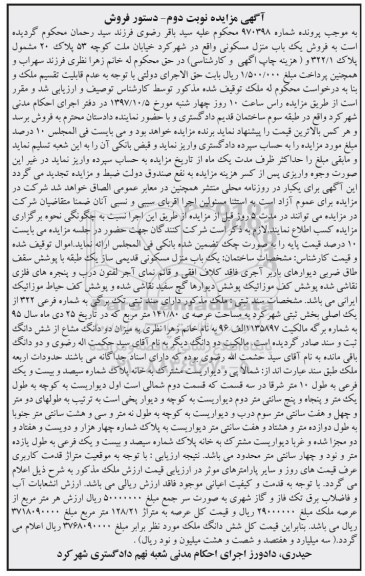 آگهی مزایده نوبت دوم- دستور فروش
به موجب پرونده شماره ۹۷۰۳۹۸ محکوم علیه سید باقر رضوی فرزند سید رحمان محکوم گردیده
است به فروش یک باب منزل مسکونی واقع در شهرکرد خیابان ملت کوچه ۵۳ پلاک ۲۰ مشمول
پلاک ۳۲۲/۱ و ( هزینه چاپ آگهی و کارشناسی) در حق محکوم له خانم زهرا نظری فرزند سهراب و
همچنین پرداخت مبلغ ۱/۵۰۰/۰۰۰ ریال بابت حق الاجرای دولتی با توجه به عدم قابلیت تقسیم ملک و
بنا به درخواست محکوم له ملک توقیف شده مذکور توسط کارشناس توصیف و ارزیابی شد و مقرر
است از طریق مزایده راس ساعت ۱۰ روز چهار شنبه مورخ ۱۳۹۷/۱۰/۵ در دفتر اجرای احکام مدنی
شهرکرد واقع در طبقه سوم ساختمان قدیم دادگستری و با حضور نماینده دادستان محترم به فروش برسد
و هر کس بالاترین قیمت را پیشنهاد نماید برنده مزایده خواهد بود و می بایست فی المجلس ۱۰ درصد
مبلغ مورد مزایده را به حساب سپرده دادگستری واریز نماید و قبض بانکی آن را به این شعبه تسلیم نماید
و مابقی مبلغ را حداکثر ظرف مدت یک ماه از تاریخ مزایده به حساب سپرده واریز نماید در غیر این
صورت وجوه واریزی پس از کسر هزینه مزایده به نفع صندوق دولت ضبط و مزایده تجدید می گردد
این آگهی برای یکبار در روزنامه محلی منتشر همچنین در معابر عمومی الصاق خواهد شد شرکت در
مزایده برای عموم آزاد است به استثنا مسئولین اجرا اقربای سببی و نسبی آنان ضمنا متقاضیان شرکت
در مزایده می توانند در مدت ۵ روز قبل از مزایده از طریق این اجرا نسبت به چگونگی نحوه برگزاری
مزایده کسب اطلاع نمایند.لازم به ذکر است شرکت کنندگان جهت حضور در جلسه مزایده می بایست
۱۰ درصد قیمت پایه را به صورت چک تضمین شده بانکی فی المجلس ارائه نمایند.اموال توقیف شده
و قیمت کارشناس: مشخصات ساختمان: یک باب منزل مسکونی قدیمی ساز یک طبقه با پوشش سقف
طاق ضربی دیوارهای باربر آجری فاقد کلاف افقی و قائم نمای آجر لفتون درب و پنجره های فلزی
نقاشی شده پوشش کف موزائیک پوشش دیوارها گچ سفید نقاشی شده و پوشش کف حیاط موزائیک
ایرانی می باشد. مشخصات سند ثبتی: ملک مذکور دارای سند ثبتی تک برگ به شماره فرعی ۳۲۲ از
یک اصلی بخش ثبتی شهرکرد به مساحت عرصه ی ۱۴۱/۸۰ متر مربع که در تاریخ ۲۵ دی ماه سال ۹۵
به شماره برگه مالکیت ۱۱۳۵۸۹۷الف ۹۶ به نام خانم زهرا نظری به میزان دو دانگ مشاع از شش دانگ
ثبت و سند صادر گردیده است. مالکیت دو دانگ دیگر به نام آقای سید حکمت اله رضوی و دو دانگ
باقی مانده به نام آقای سید حشمت الله رضوی بوده که دارای اسناد جداگانه می باشند حدودات اربعه
ملک طبق سند عبارت اند از: شمالا پی و دیواریست مشترک به خانه پلاک شماره سیصد و بیست و یک
فرعی به طول ۱۰ متر شرقا در سه قسمت که قسمت دوم شمالی است اول دیواریست به کوچه به طول
یک متر و پنجاه و پنج سانتی متر دوم دیواریست به کوچه و دیوار پخی است به ترتیب به طولهای دو متر
و چهل و هفت سانتی متر سوم درب و دیواریست به کوچه به طول نه متر و سی و هشت سانتی متر جنوبا
به طول دوازده متر و هشتاد و هفت سانتی متر دیواریست به پلاک شماره چهار هزار و دویست و هفتاد و
دو مجزا شده و غربا دیواریست مشترک به خانه پلاک شماره سیصد و بیست و یک فرعی به طول یازده
متر و نود و چهار سانتی متر محدود می باشد. نتیجه ارزیابی : با توجه به موقعیت متراژ قدمت کاربری
عرف قیمت های روز و سایر پارامترهای موثر در ارزیابی قیمت ارزش ملک مذکور به شرح ذیل اعلام
می گردد. با توجه به قدمت و کیفیت اعیانی موجود فاقد ارزش ریالی می باشد. ارزش انشعابات آب
و فاضلاب برق تک فاز و گاز شهری به صورت سر جمع مبلغ ۵۰۰۰۰۰۰۰ ریال ارزش هر متر مربع از
عرصه ملک مبلغ ۲۹۰۰۰۰۰۰ ریال و قیمت کل عرصه به متراژ ۱۲۸/۲۱ متر مربع مبلغ ۳۷۱۸۰۹۰۰۰۰
ریال می باشد. بنابراین قیمت کل شش دانگ ملک مورد نظر برابر مبلغ ۳۷۶۸۰۹۰۰۰۰ ریال اعلام می
گردد.( سه میلیارد و هفتصد و شصت و هشت میلیون و نود ریال) .
حیدری، دادورز اجرای احکام مدنی شعبه نهم دادگستری شهرکرد